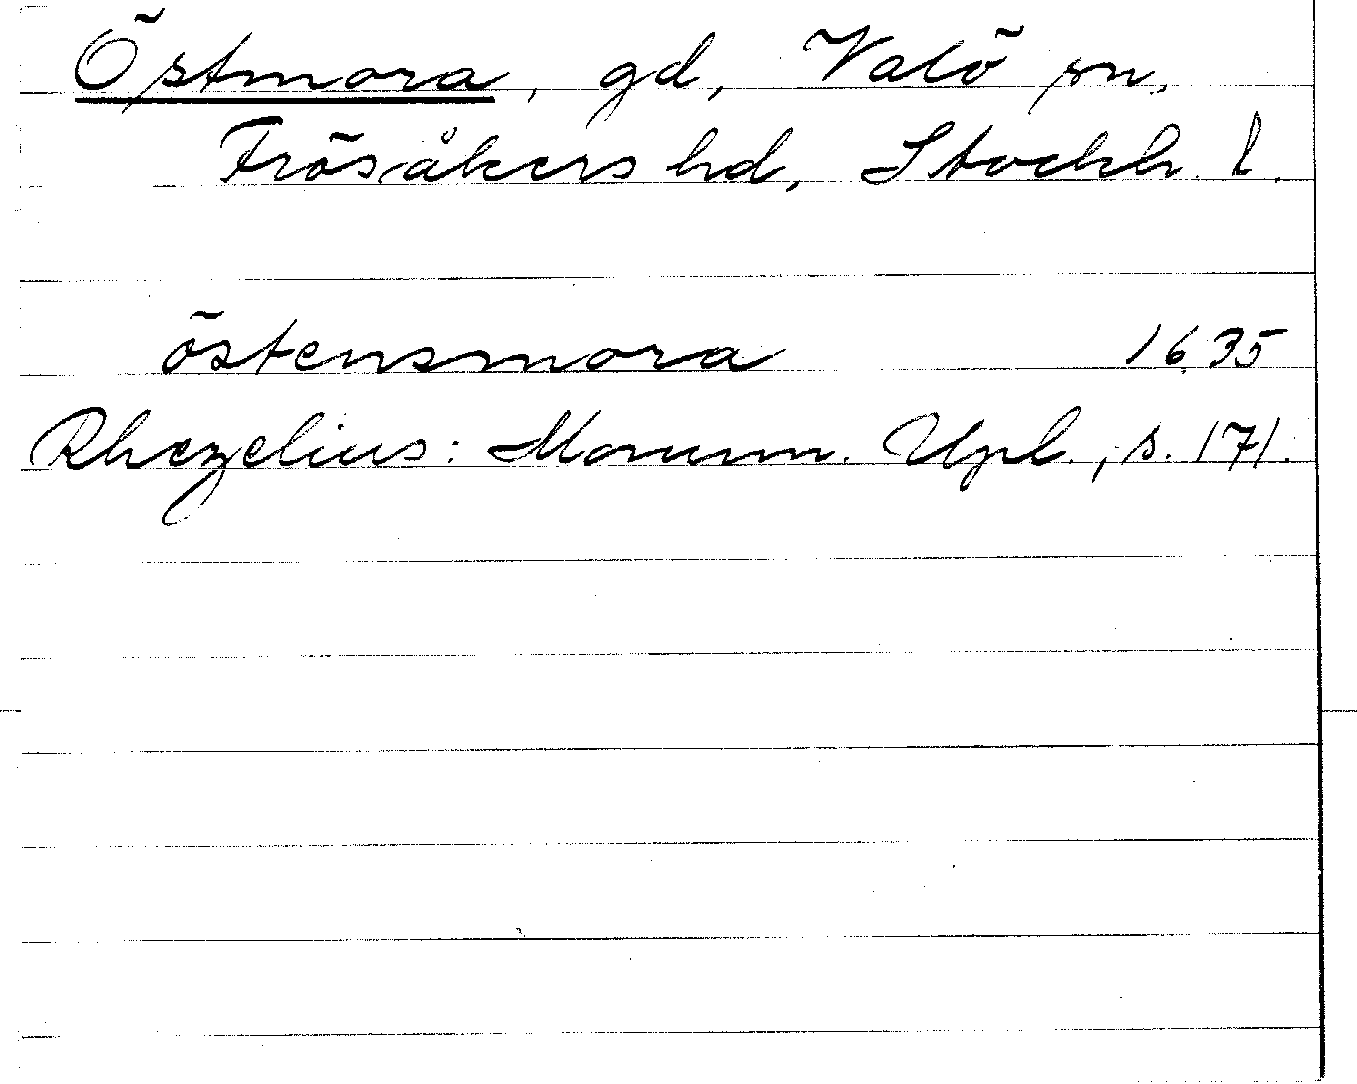 Östmora, gd, Valö sn,
Frösåkers hd, Stockh. l.
östensmora 1635
Rhezelius: Monum. Upl., s. 171.